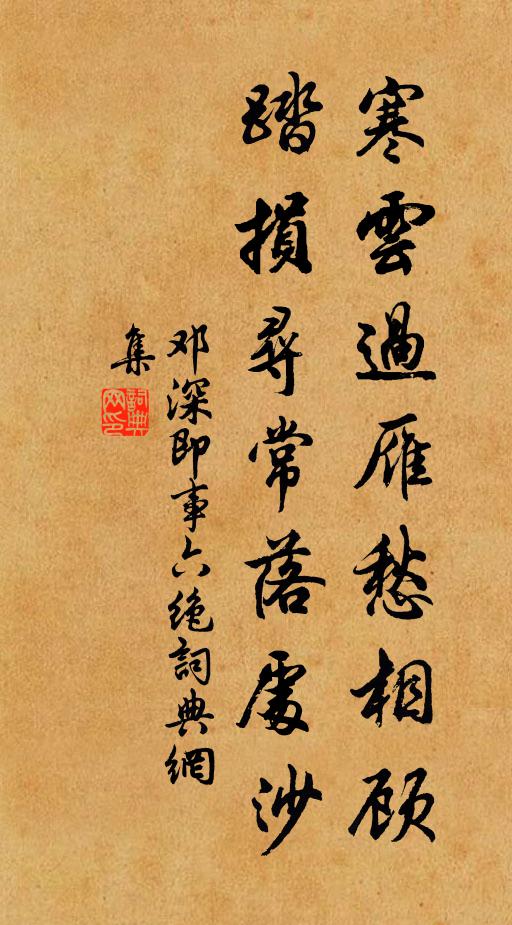 寒雲過雁愁相顾
踏損尋常落處沙
邓深即事六绝詞典網
集
詞典
网印